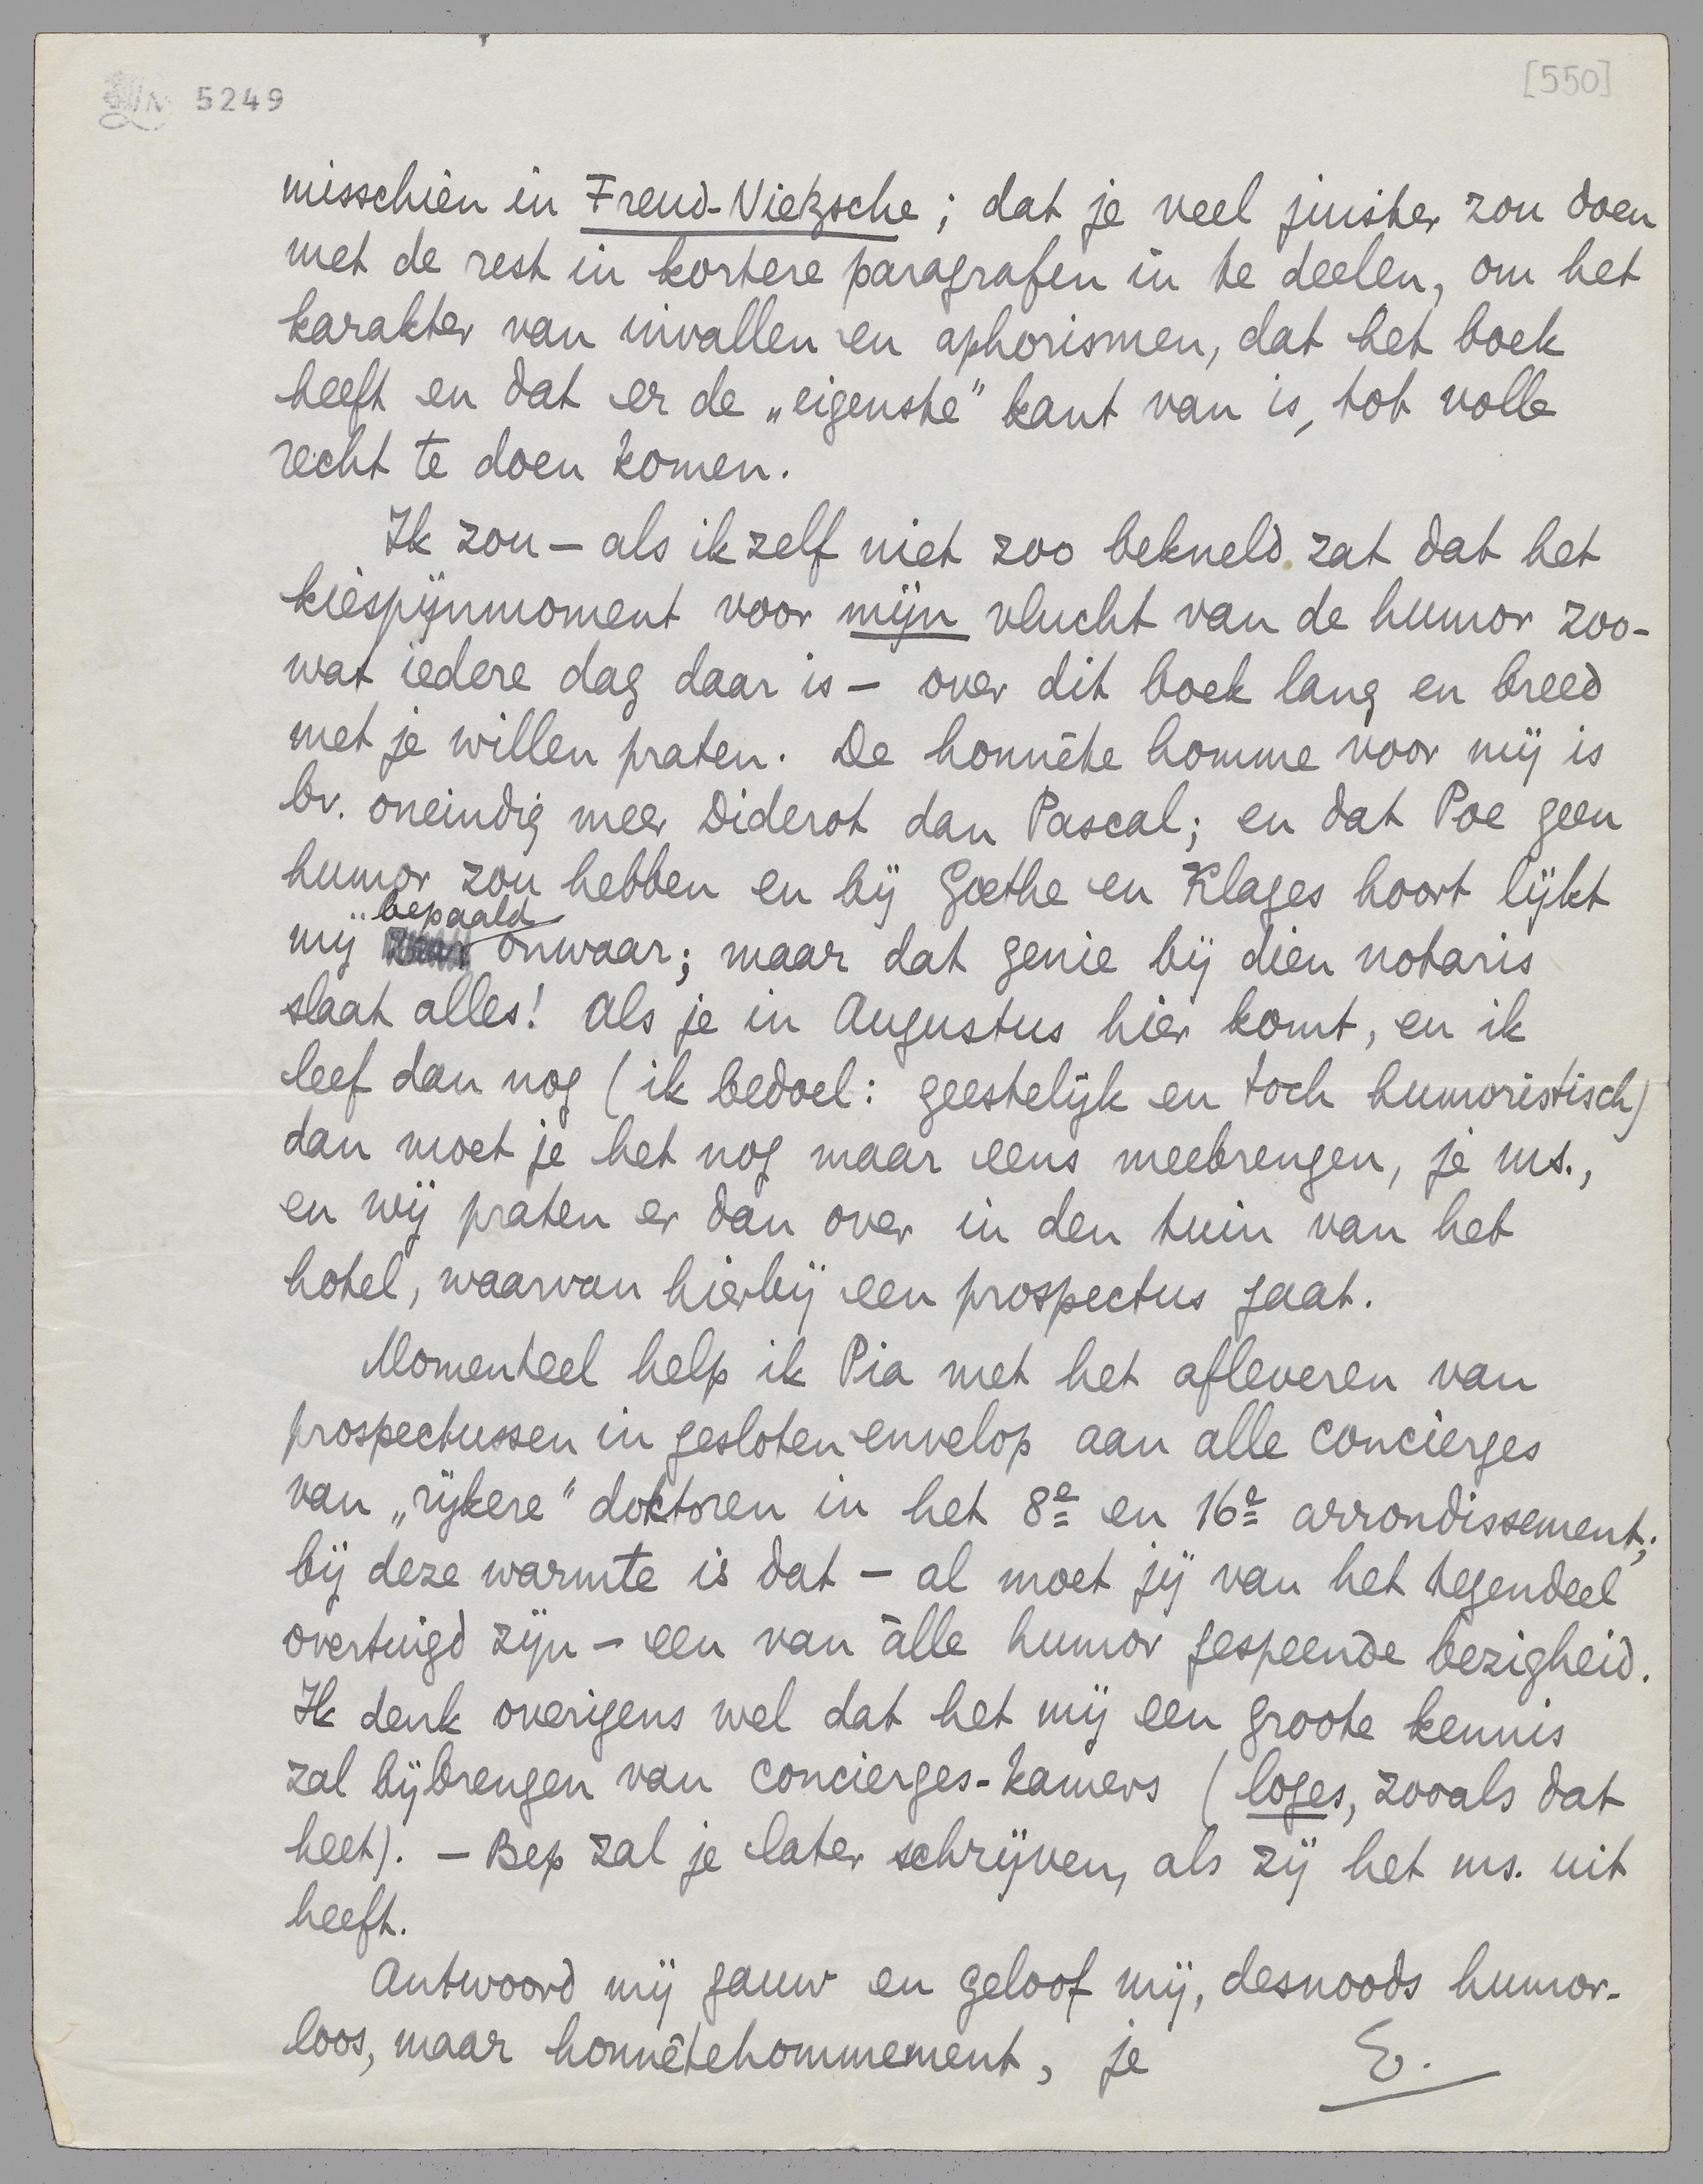 5249
[550]
misschien in Freud-Nietzsche; dat je veel juister zou doen
met de rest in kortere paragrafen in te deelen, om het
karakter van invallen en aphorismen, dat het boek
heeft en dat er de „eigenste” kant van is, tot volle
recht te doen komen.
Ik zou — als ik zelf niet zoo bekneld zat dat het
kiespijnmoment voor mijn vlucht van de humor zoo-
wat iedere dag daar is — over dit boek lang en breed
met je willen praten. De honnête homme voor mij is
bv. oneindig meer Diderot dan Pascal; en dat Poe geen
humor zou hebben en bij Goethe en Klages hoort lijkt
mij bepaald onwaar; maar dat genie bij dien notaris
slaat alles! Als je in Augustus hier komt, en ik
leef dan nog (ik bedoel: geestelijk en toch humoristisch)
dan moet je het nog maar eens meebrengen, je ms.,
en wij praten er dan over in den tuin van het
hotel, waarvan hierbij een prospectus gaat.
Momenteel help ik Pia met het afleveren van
prospectussen in gesloten envelop aan alle concierges
van „rijkere” doktoren in het 8e en 16e arrondissement;
bij deze warmte is dat — al moet jij van het tegendeel
overtuigd zijn — een van àlle humor gespeende bezigheid.
Ik denk overigens wel dat het mij een groote kennis
zal bijbrengen van concierges-kamers (loges, zooals dat
heet). — Bep zal je later schrijven, als zij het ms. uit
heeft.
Antwoord mij gauw en geloof mij, desnoods humor-
loos, maar honnêtehommement, je E.